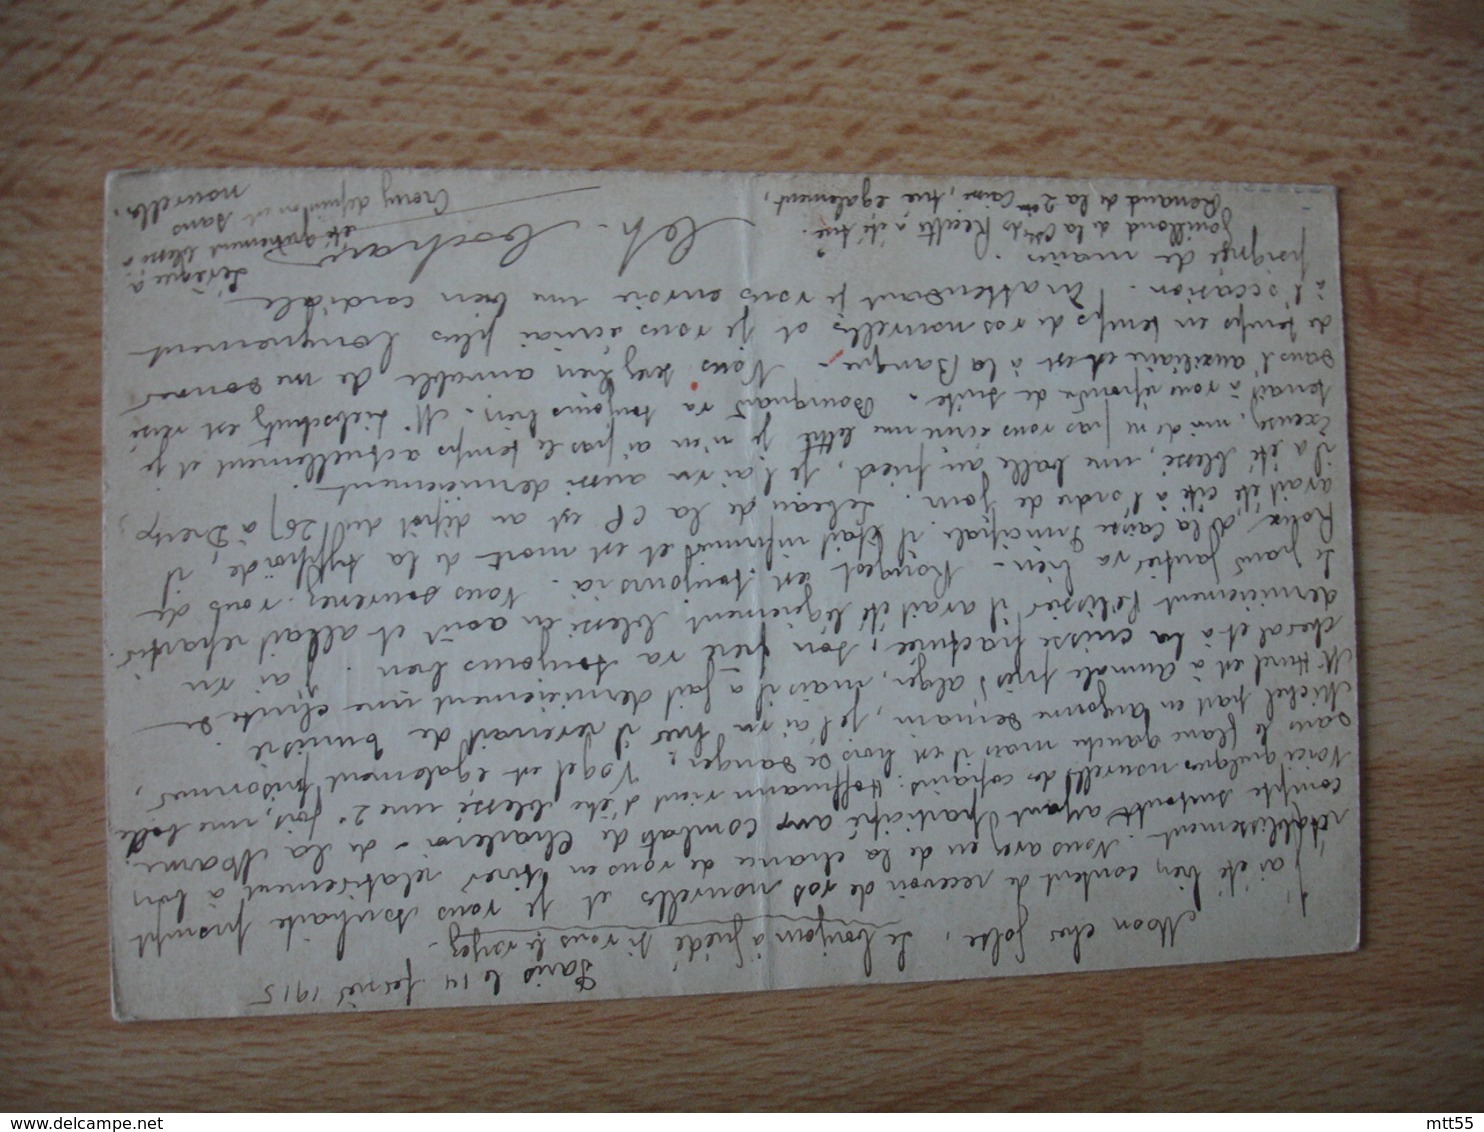 Paris le 14 février 1915
Mon cher Jolse, Le bonjour à Frédé si vous le voyez.
J'ai été bien content de recevoir de vos nouvelles et je vous souhaite prompt
rétablissement. Vous avez eu de la chance de vous en tirer relativement à bon
compte surtout ayant participé aux combats de Charleroi - de la Marne.
Voici quelques nouvelles des copains: Hoffmann vient d'être blessé une 2e fois, une balle
dans le flanc gauche mais il est hors de danger; Vogel est également prisonnier,
Michel part en Argonne demain, je l'ai vu hier il revenait de Tunisie.
Mr Hurel est à Aumale près d'Alger, mais il a fait dernièrement une chute de
cheval et à la cuisse fracturée, son frère va toujours bien. J'ai vu
dernièrement Pelissier il avait été légèrement blessé en août et allait repartir.
Le grand Gautier va bien. Rougeot est toujours ici. Vous souvenez-vous de
Roux de la Caisse Principale il était infirmier et est mort de la typhoïde, il
avait été cité à l'ordre du jour. Lebeau de la CP est au dépôt du 26 à Dreux,
il a été blessé, une balle au pied, je l'ai vu aussi dernièrement.
Excusez moi de ne pas vous écrire une lettre je n'en ai pas le temps actuellement et je
tenais à vous répondre de suite. Bourquard va toujours bien. Mr Liebschutz est versé
dans l'auxiliaire et est à la Banque. Vous serez bien aimable de me donner
de temps en temps de vos nouvelles et je vous écrirai plus longuement
à l'occasion. En attendant je vous envoie une bien cordiale
poignée de mains.
Gouilloud de la Ctté des Recettes a été tué.
Renaud de la 2ème Caisse, tué également,
Ch.
Levêque a
été grièvement blessé
Crouzy disparition et sans
nouvelles.
mtt55